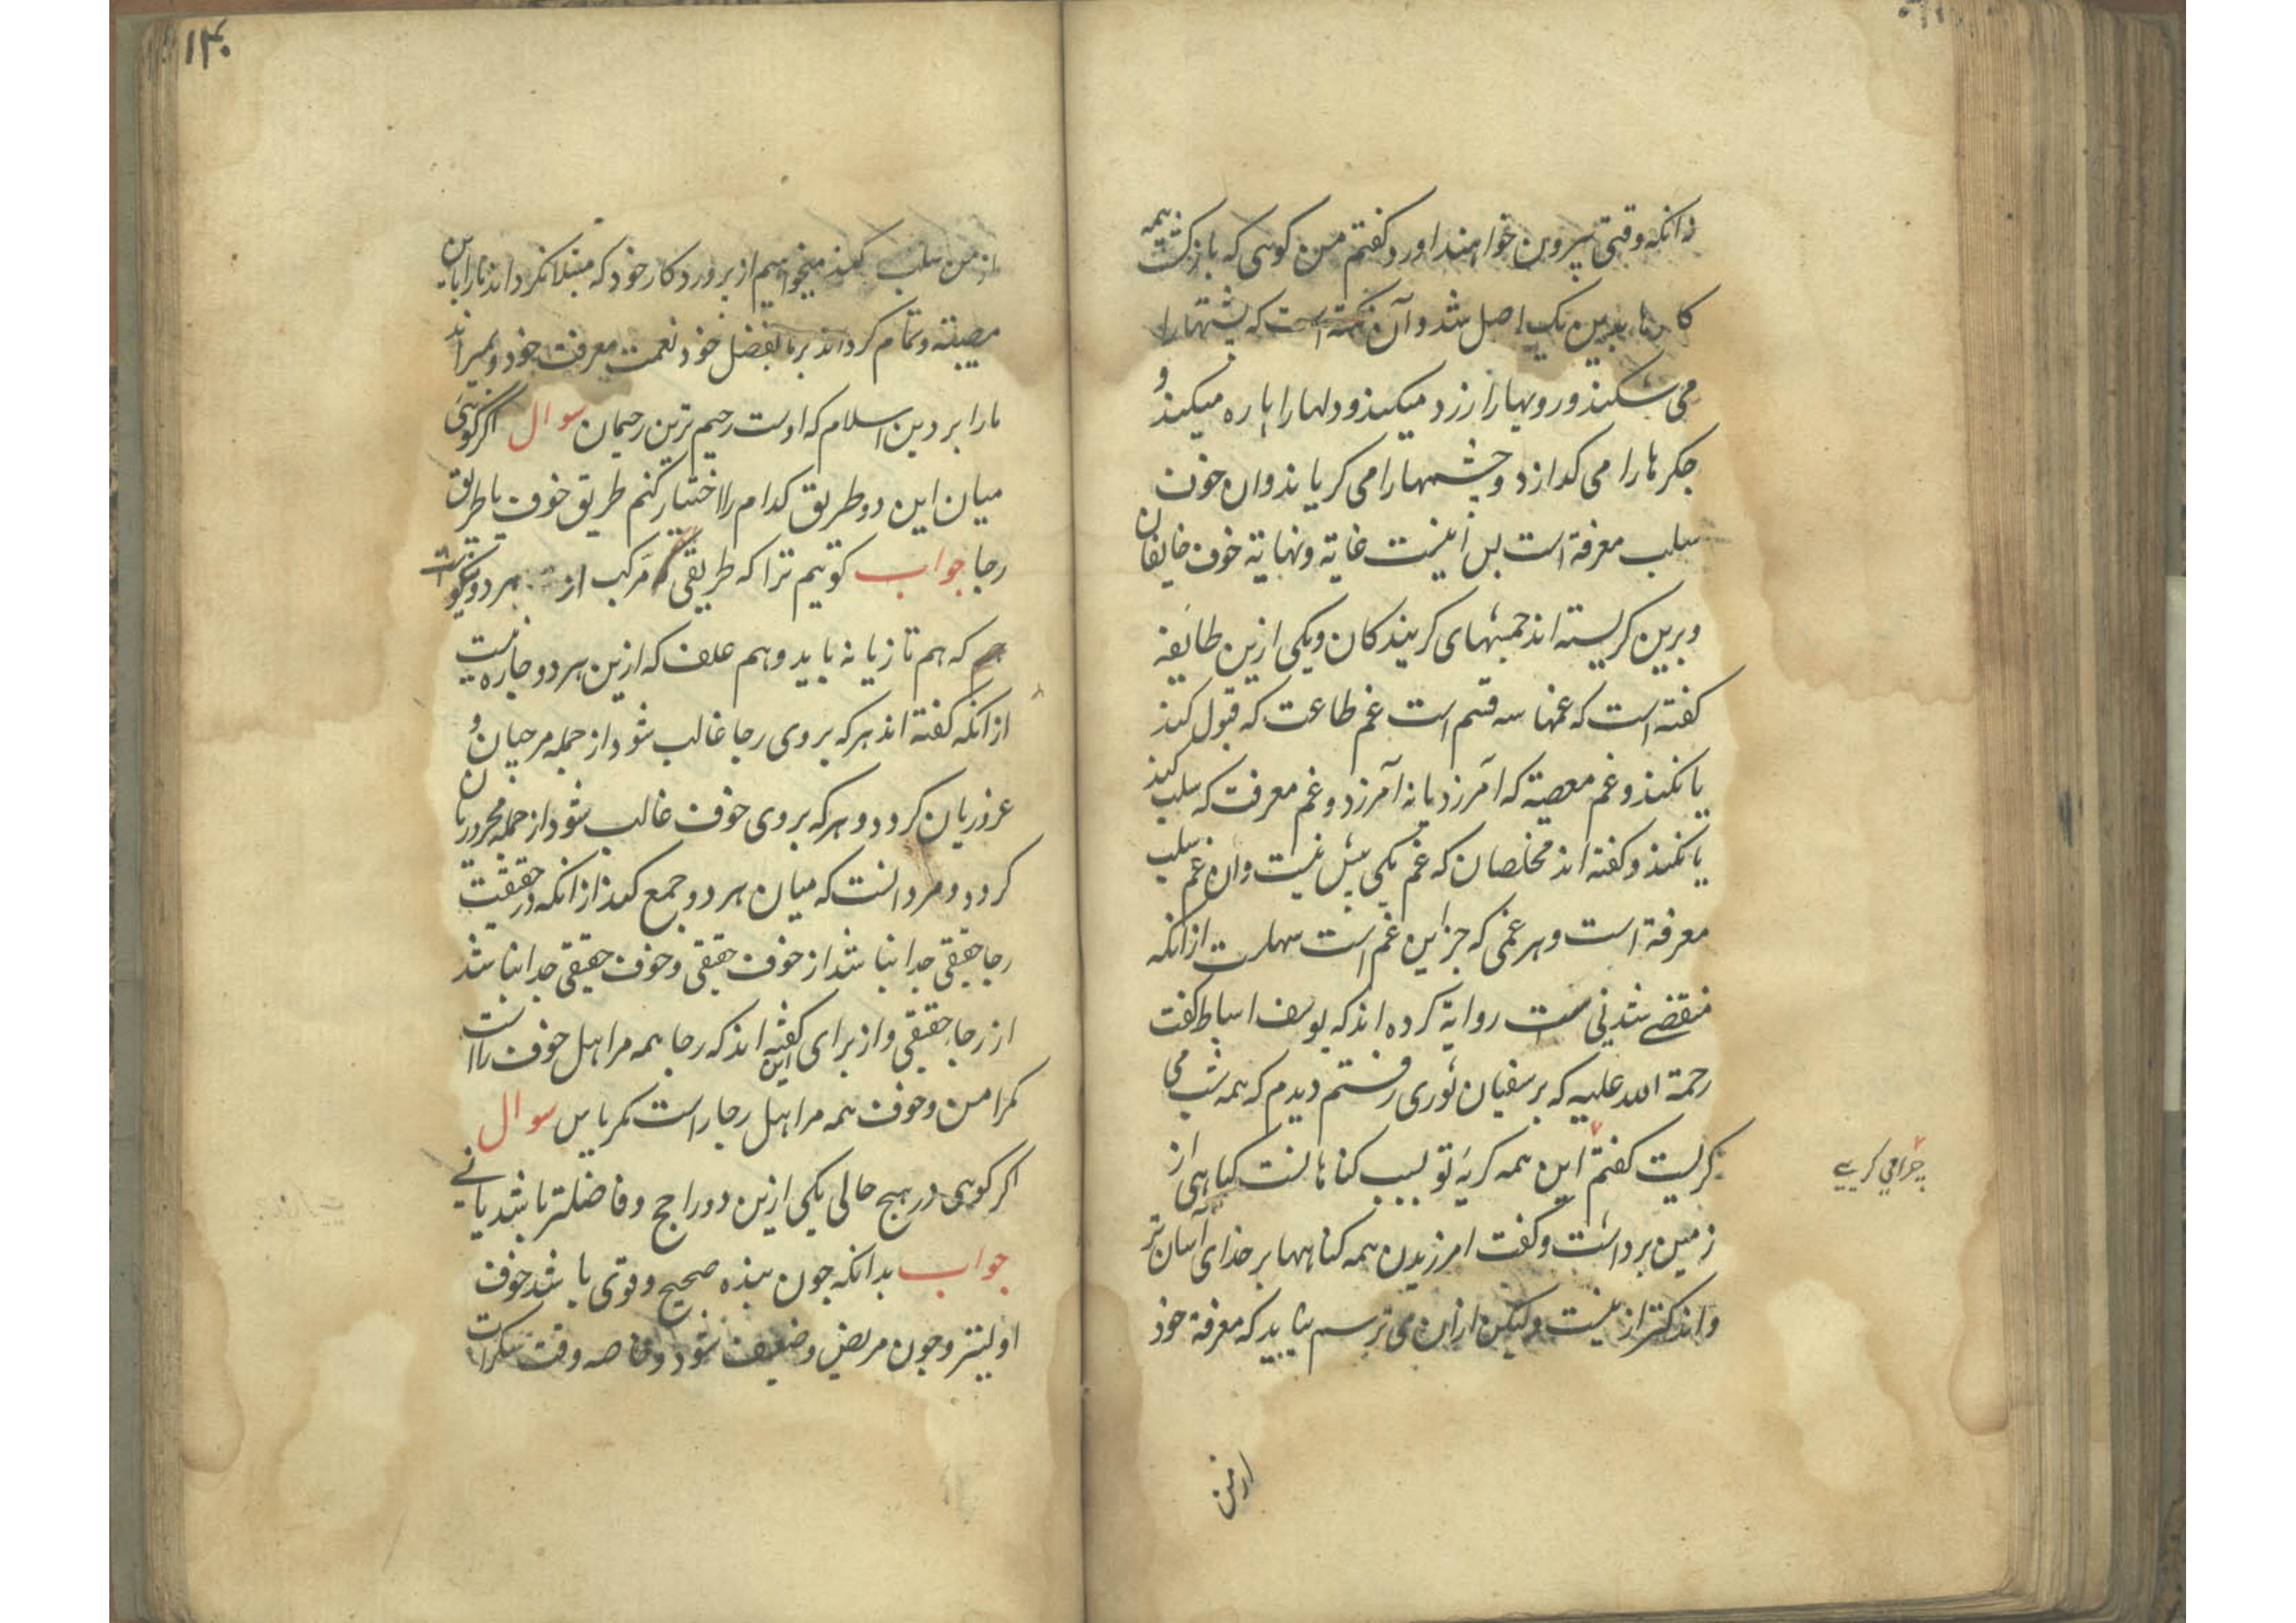 زانکه وقتی بیرون خواهند اورد کفتم من کوی که بازکشت همه
کارها بدین یک اصل شد و آن نکته است که پشتها را
می شکند و رویها را زرد میکند و دلها را پاره میکند و
جکرها را می کدازد و چشمها را می کریاند وان خوف
سلب معرفة است بس اینست غایة و نهایة خوف خایفان
و برین کریسته اند چشمهای کریندکان و یکی ازین طایفه
کفته است که غمها سه قسم است غم طاعت که قبول کند
یا نکند و غم معصیة که آمرزد یا نه آمرزد و غم معرفت که سلب کند
یا نکند و کفته اند مخلصان که غم یکی بیش نیست وان غم سلب
معرفة است و هر غمی که جز این غم است سهلست ازانکه
منقضی شدنی است روایة کرده اند که یوسف اسباط کفت
رحمة الله علیه که بر سفیان ثوری رفتم دیدم که همه شب می
کریست کفتم این همه کریه تو بسبب کناهانست کیاهی از
چرا می کریی
زمین برداشت و کفت امرزیدن همه کناهها بر خدای آسان تر
و اندکتر از نیست ولیکن ازان می ترسم نباید که معرفة خود
از من
۱۳۰
از من سلب کند میخواهیم از پروردکار خود که مبتلا نکرداند مارا باین
مصیبة و تمام کرداند بر ما بفضل خود نعمت معرفت خود و بمیراند
مارا بر دین اسلام که اوست رحیم ترین رحیمان سوال اکر کویی
میان این دو طریق کدام را اختیار کنم طریق خوف یا طریق
رجا جواب کوییم ترا که طریقی مرکب از هر دو نیکوست
که هم تازیانه باید و هم علف که ازین هر دو چاره نیست
ازانکه کفته اند هر که بر وی رجا غالب شود از جمله مرجیان و
غروریان کردد و هر که بروی خوف غالب شود از جمله محروریان
کردد و مرد انست که میان هر دو جمع کند ازانکه در حقیقت
رجا حقیقی جدا نباشد از خوف حقیقی و خوف حقیقی جدا نباشد
از رجا حقیقی و از برای این کفته اند که رجا همه مر اهل خوف راست
نه امن و خوف همه مر اهل رجا راست نه یاس سوال
اکر کویی در هیچ حالی یکی ازین دو راجح و فاضلتر باشد یا نی
جواب بدانکه چون بنده صحیح و قوی باشد خوف
اولیتر و چون مریض و ضعیف شود و خاصه وقت سکرات